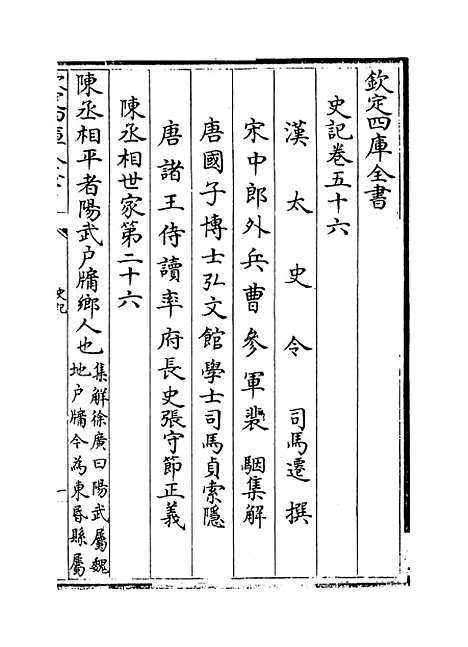 欽定四庫全書
史記卷五十六
漢太史令司馬遷撰
宋中郎外兵曹參軍裴駰集解
唐國子博士弘文館學士司馬貞索隱
唐諸王侍讀率府長史張守節正義
陳丞相世家第二十六
陳丞相平者陽武户牖鄉人也
集解徐廣曰陽武屬魏
地户牖今為東昏縣屬
史記
一